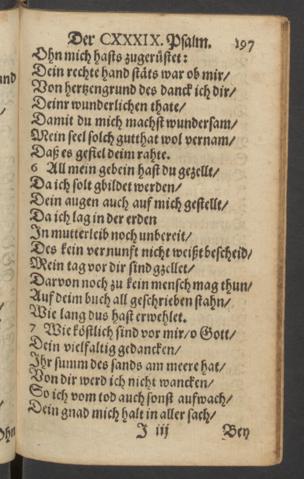 Der CXXXIX. Psalm. 197
Ohn mich hasts zugerüstet:
Dein rechte hand stäts war ob mir/
Von hertzengrund des danck ich dir/
Deinr wunderlichen thate/
Damit du mich machst wundersam/
Mein seel solch gutthat wol vernam/
Daß es gefiel deim rahte.
6 All mein gebein hast du gezellt/
Da ich solt gbildet werden/
Dein augen auch auf mich gestellt/
Da ich lag in der erden
In mutterleib noch unbereit/
Des kein vernunft nicht weißt bescheid/
Mein tag vor dir sind gzellet/
Darvon noch zu kein mensch mag thun/
Auf deim buch all geschrieben stahn/
Wie lang dus hast erwehlet.
7 Wie köstlich sind vor mir/ o Gott/
Dein vielfaltig gedancken/
Ihr summ des sands am meere hat/
Von dir werd ich nicht wancken/
So ich vom tod auch sonst aufwach/
Dein gnad mich halt in aller sach/
J iij Bey
and
Ohn